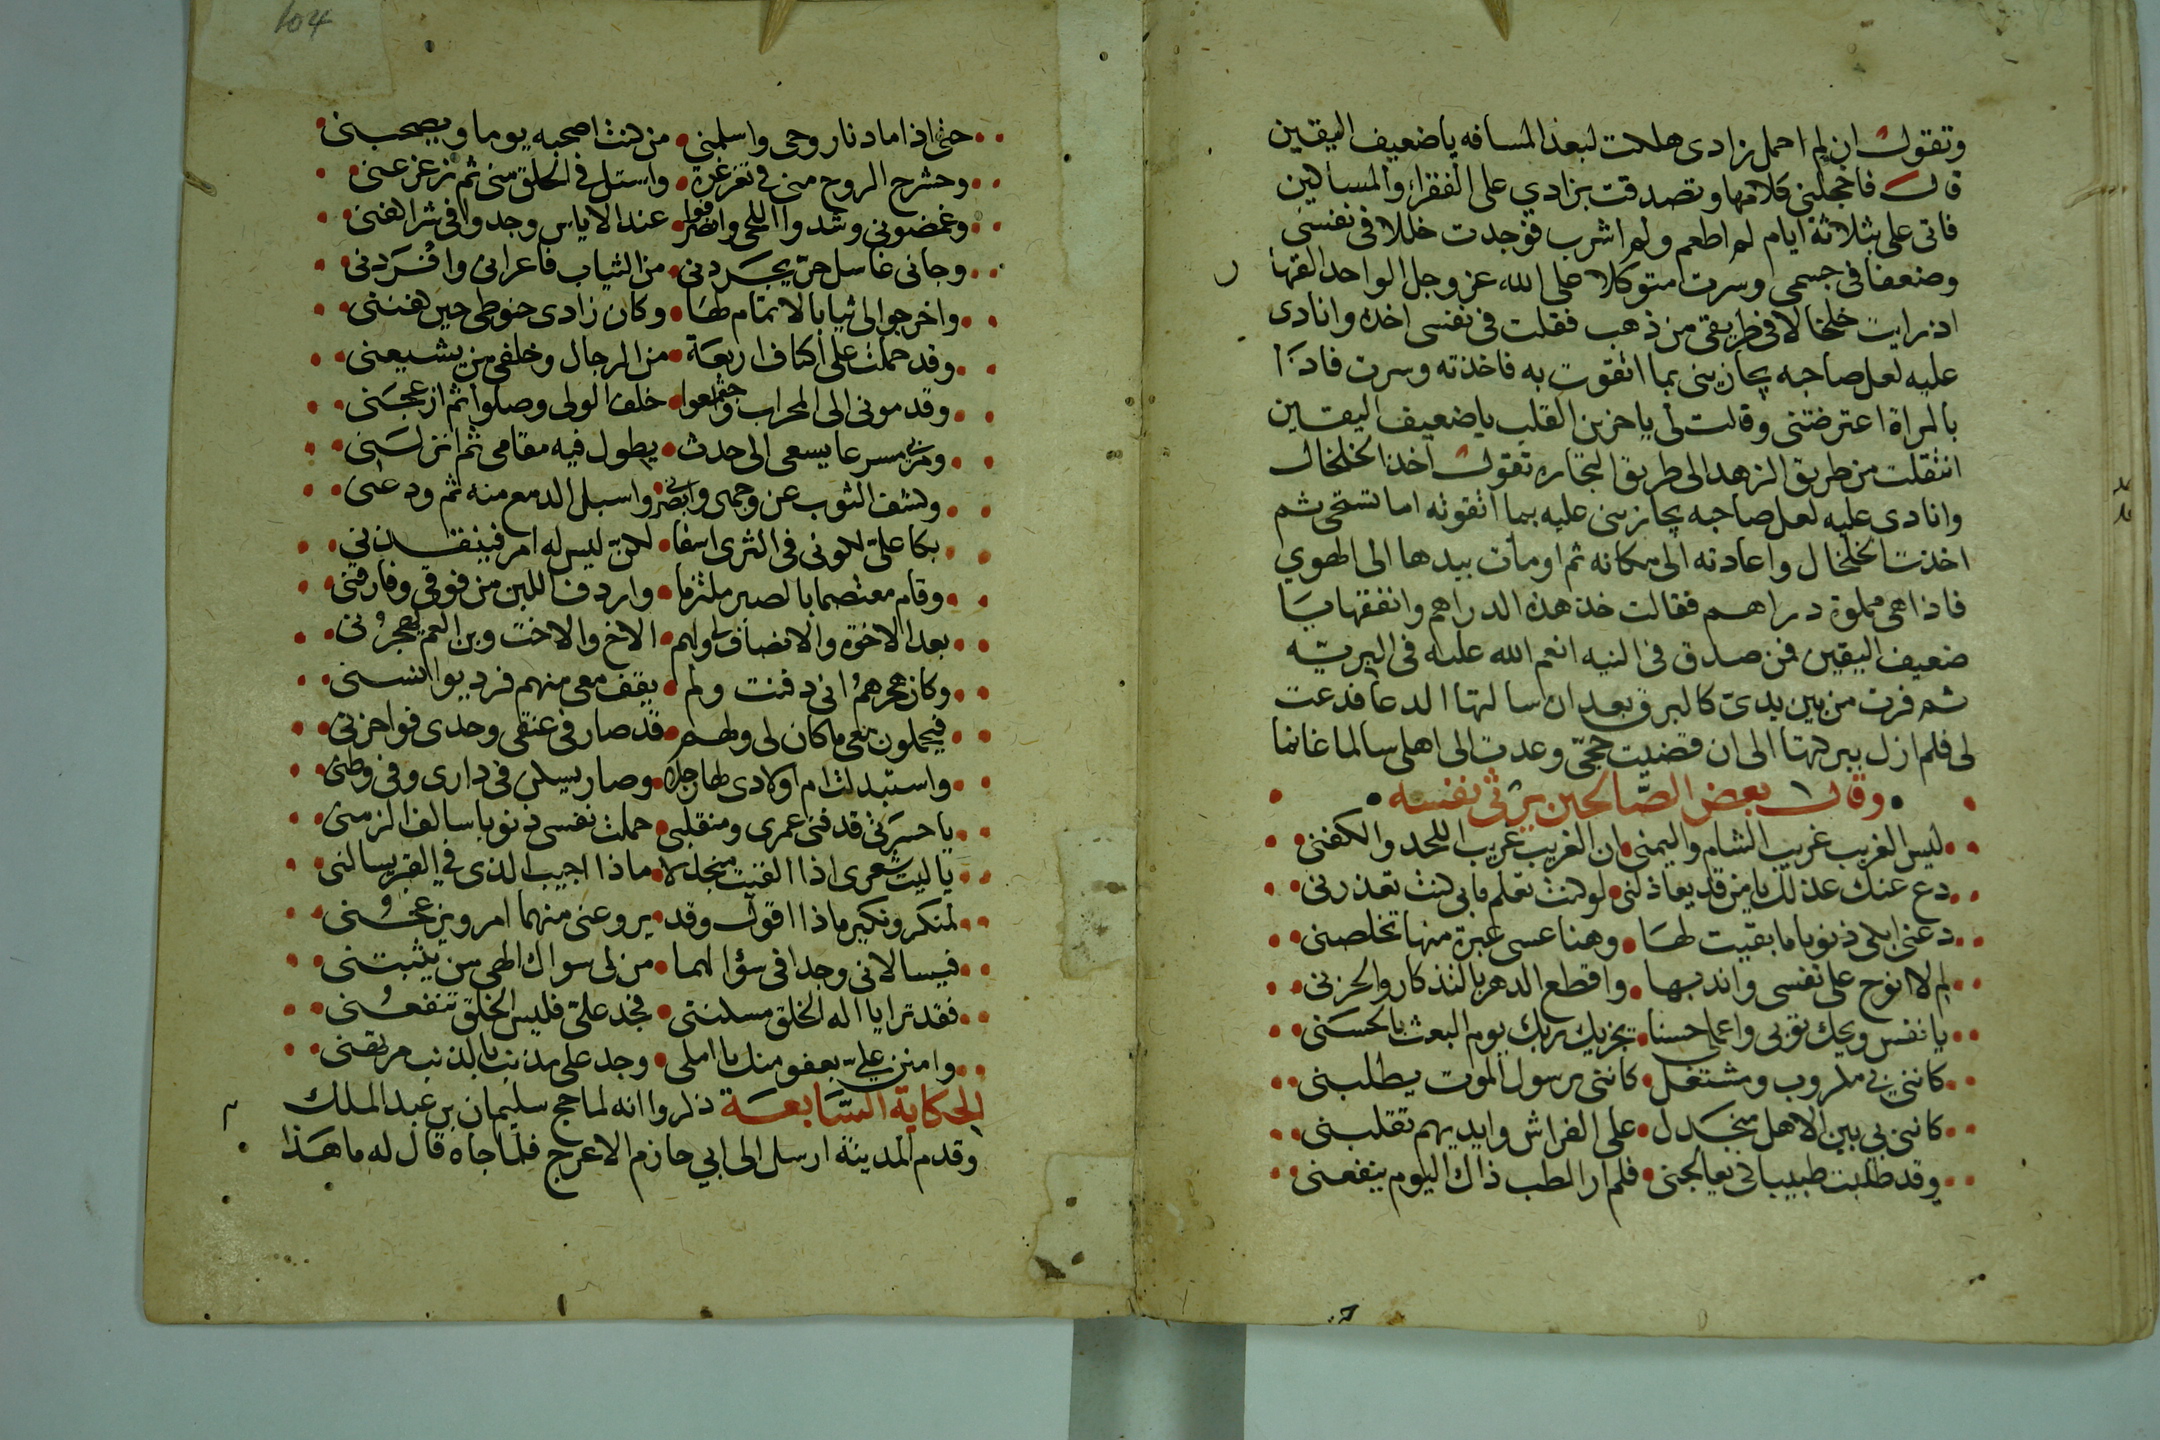 وتقول ان لم احمل زادى هلكت لبعد المسافه ياضعيف اليقين
قال فاخجلنى كلامها وتصدقت بزادي على الفقراء والمساكين
فاتى على ثلاثة ايام لم اطعم ولم اشرب فوجدت خللا فى نفسى
وضعفا فى جسمى وسرت متوكلا على الله عز وجل الواحد القها
ر
اذ رايت خلخالا فى طريقى من ذهب فقلت فى نفسى اخذه وانادى
عليه لعل صاحبه يجازينى بما اتقوت به فاخذته وسرت فاذا
بالمراة اعترضتنى وقالت لى ياحزين القلب ياضعيف اليقين
انتقلت من طريق الزهد الى طريق التجاره تقول اخذ الخلخال
وانادى عليه لعل صاحبه يجازينى عليه بما اتقوته اما تستحى ثم
اخذت الخلخال واعادته الى مكانه ثم اومات بيدها الى الهوي
فاذا هى مملوة دراهم فقالت خذ هذه الدراهم وانفقها يا
ضعيف اليقين فمن صدق فى النيه انعم الله عليه فى البريّه
ثم فرت من بين يدىّ كالبرق بعد ان سالتها الدعا فدعت
لى فلم ازل ببركتها الى ان قضيت حجّى وعدت الى اهلى سالما غانما
وقال بعض الصّالحين يرثى نفسه
ليس الغريب غريب الشام واليمنى ان الغريب غريب اللحد والكفنى
دع عنك عذلك يامن قد يعاذلنى لو كنت تعلم ما بى كنت تعذرنى
دعنى ابكى ذنوبا ما بقيت لها وهنا عسى عبرة منها تخلصنى
لم لا انوح على نفسى واندبها واقطع الدهر بالتذكار والحزنى
يانفس ويحك توبى واعملى حسنا يجزيك ربك يوم البعث بالحسنى
كاننى فى مكروب ومشتغل كاننى برسول الموت يطلبنى
كاننى بي بين الاهل منجدل على الفراش وايديهم تقلبنى
وقد طلبت طبيبا كى يعالجنى فلم ار الطب ذاك اليوم ينفعنى
104
حتى اذا ما دنا روحى واسلمني من كنت اصحبه يوما ويصحبنى
وحشرج الروح منى فى تغرغرة واستل فى الحلق منى ثم زعزعنى
وغمضونى وشدوا اللحى وانصرفوا عند الاياس وجدوا فى شرا كفنى
وجانى غاسل حتى يجردنى من الثياب فاعرانى وافردنى
واخرجوا لى ثيابا لا تمام لها وكان زادى حنوطى حين كفننى
وقد حملت على اكتاف اربعة من الرجال وخلفى من يشيعنى
وقدمونى الى المحراب واجتمعوا خلف الولى وصلوا ثم ازعجنى
ومر بى مسرعا يسعى الى حدث يطول فيه مقامى ثم انزلنى
وكشف الثوب عن وجهى وابصرنى واسبل الدمع منه ثم ودعنى
بكا علىّ لكونى فى الثرى اسفا لكن ليس له امر فينقذنى
وقام معتصما بالصبر ملتزما واردف اللبن من فوقى وفارقنى
بعد الاخوة والانصاف اولهم الاخ والاخت وبن العم يهجرنى
وكان هجرهم انى دفنت ولم يقف معى منهم فرد يوانسنى
فيحملون معى ما كان لى ولهم قد صار فى عنقى وحدى فواحزنى
واستبدلت ام اولادى لها رجلا وصار يسكن فى دارى وفى وطنى
ياحسرتى قد فنى عمرى ومنقلبى حملت نفسى ذنوبا سالف الزمنى
ياليت شعرى اذا القيت منجدلا ماذا اجيب الذى فى القبر يسالنى
لمنكر ونكير ماذا اقول وقد يروعنى منهما امر ويزعجونى
فيسالانى وجدا فى سؤالهما من لى سواك الهى من يثبتنى
فقد ترا يا اله الخلق مسكنتى فجد علىّ فليس الخلق تنفعنى
وامنن علىّ بعفو منك يا املى وجد على مذنب بالذنب مرتهنى
الحكاية السّابعة ذكروا انه لما حج سليمان بن عبد الملك
وقدم المدينة ارسل الى ابي حازم الاعرج فلما جاه قال له ما هذا